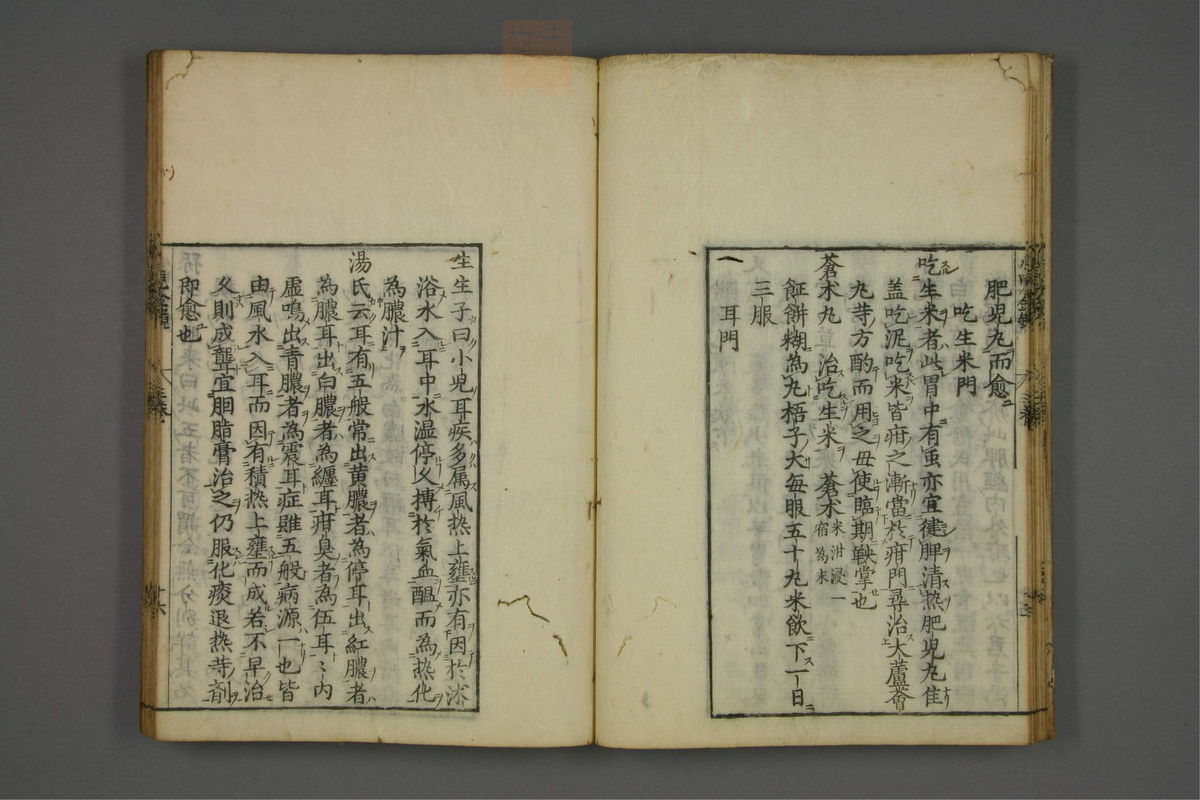 肥兒丸而愈
吃生米門
吃生米者此胃中有虫亦宜健脾清熱肥兒丸佳
盖吃泥吃米皆疳之漸當於疳門尋治大蘆薈
丸䓁方酌而用之毋使臨期鞅掌也
蒼朮丸 治吃生米 蒼朮米泔浸一宿為末
飪餅糊為丸梧子大每服五十丸米飲下一日
三服
一 耳門
生生子曰小兒耳疾多属風熱上壅亦有因於沐
浴水入耳中水湿停久搏於氣血醞而為熱化
為膿汁
湯氏云耳有五般常出黄膿者為停耳出紅膿者
為膿耳出白膿者為纏耳疳臭者為伍耳〻内
虛鳴出青膿者為震耳症雖五般病源一也皆
由風水入耳而因有積热上壅而成若不早治
久則成聾宜胭脂膏治之仍服化痰退热䓁劑
即愈也